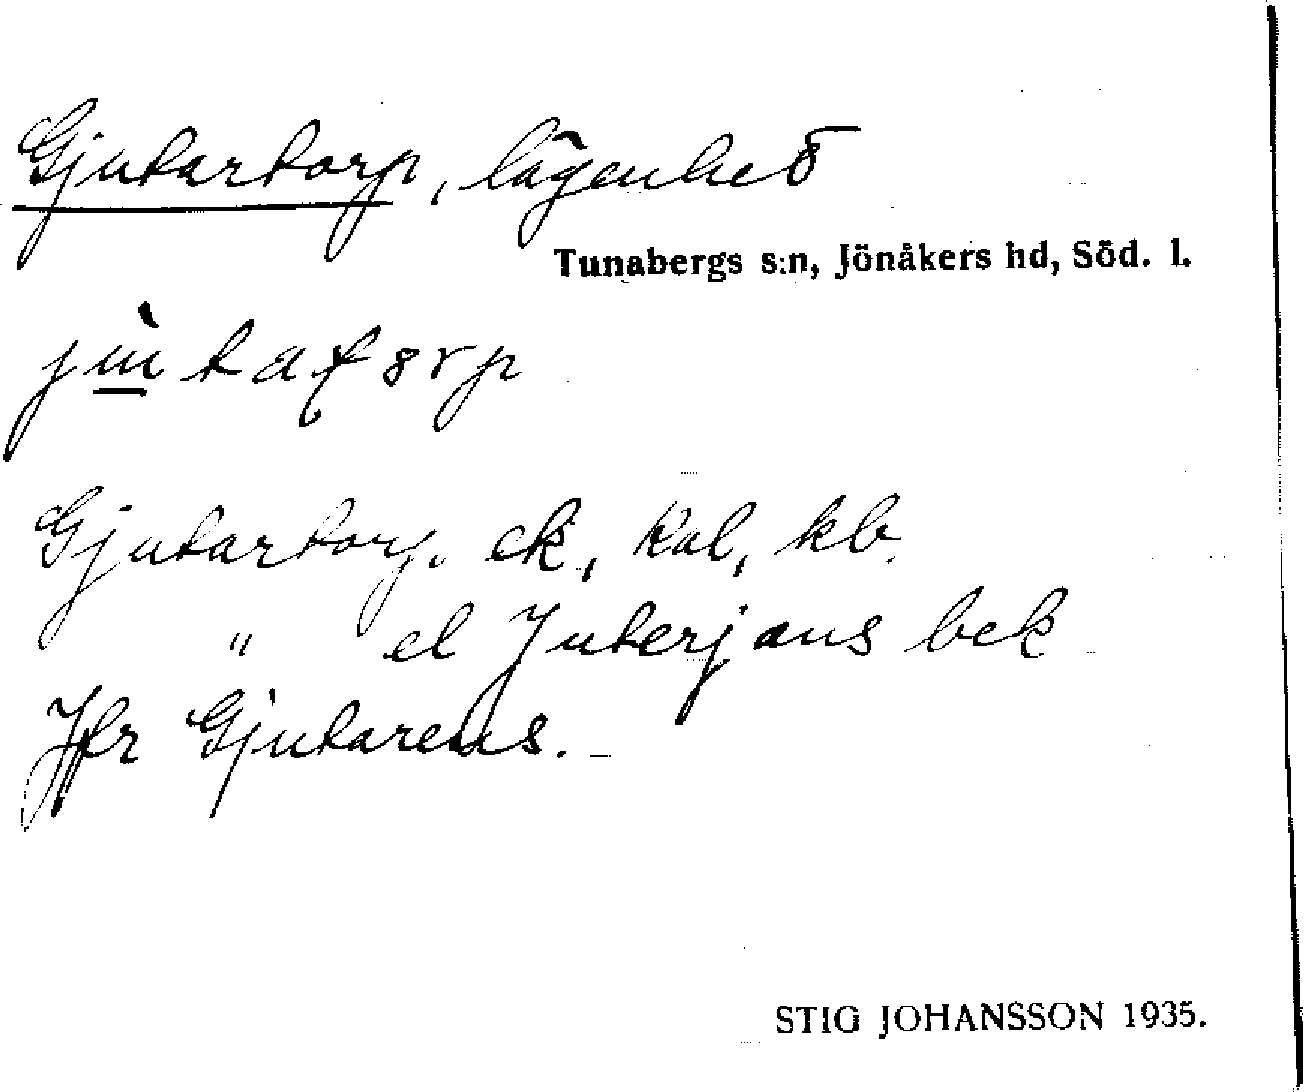 Gjutartorp, lägenhet
Tunabergs s:n, Jönåkers hd, Söd. l.
Gjutartorp. ek, kal, kb.
" el Juterjans bek
Jfr Gjutarens.
STIG JOHANSSON 1935.